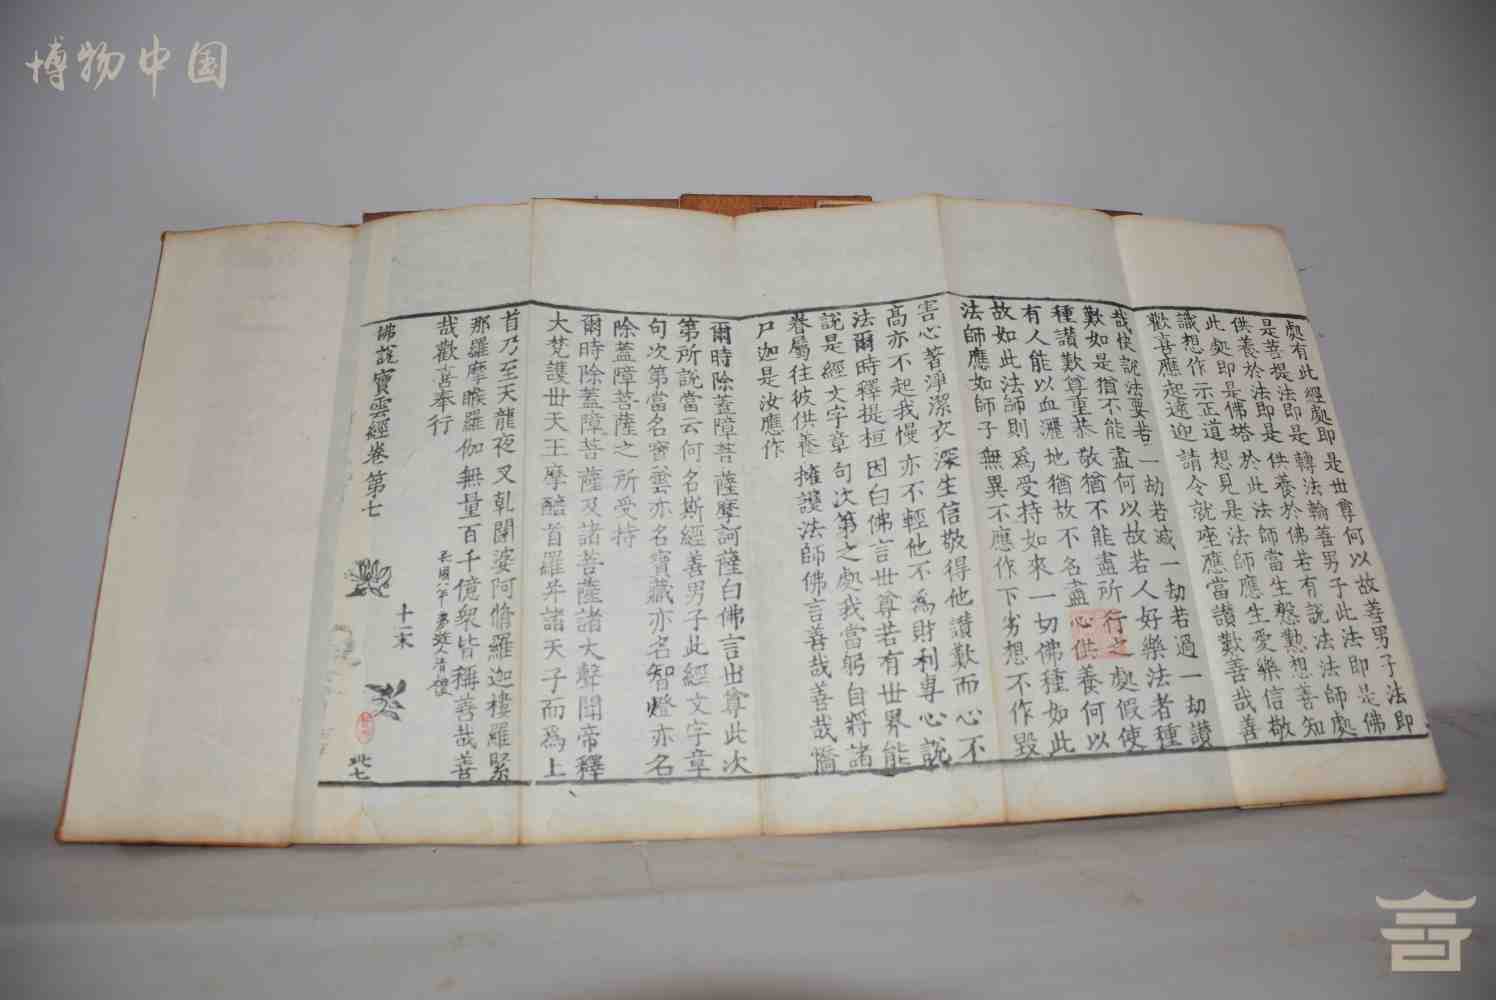 博物中国
處有此經處即是世尊何以故善男子法即
是菩提法即是轉法輪善男子此法即是佛
供養於法即是供養於佛若有說法法師處
此處即是佛塔於此法師當生慇懃想善知
識想作示正道想見是法師應生愛樂信敬
歡喜應起遠迎請令就座應當讚歎善哉善
哉快說法要若一劫若減一劫若過一劫讚
歎如是猶不能盡何以故若人好樂法者種
種讚歎尊重恭敬猶不能盡所行之處假使
有人能以血灑地猶故不名盡心供養何以
故如此法師則為受持如來一切佛種如此
法師應如師子無異不應作下劣想不作毀
害心著淨潔衣深生信敬得他讚歎而心不
高亦不起我慢亦不輕他不為財利專心說
法爾時釋提桓因白佛言世尊若有世界能
說是經文字章句次第之處我當躬自將諸
眷屬往彼供養擁護法師佛言善哉善哉憍
尸迦是汝應作
爾時除蓋障菩薩摩訶薩白佛言世尊此次
第所說當云何名斯經善男子此經文字章
句次第當名寶雲亦名寶藏亦名智燈亦名
除蓋障菩薩之所受持
爾時除蓋障菩薩及諸菩薩諸大聲聞帝釋
大梵護世天王摩醯首羅并諸天子而為上
首乃至天龍夜叉乾闥婆阿脩羅迦樓羅緊
那羅摩睺羅伽無量百千億衆皆稱善哉善
哉歡喜奉行
佛說寶雲經卷第七
十一末